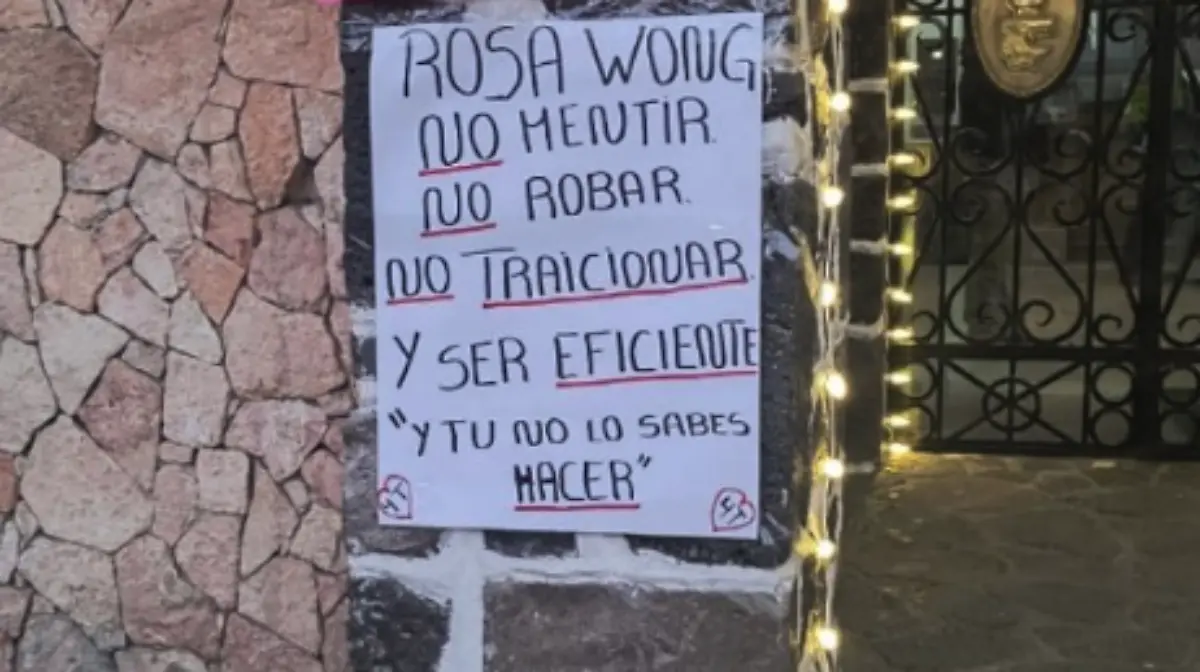 ROSA WONG
NO MENTIR.
NO ROBAR.
NO TRAICIONAR.
Y SER EFICIENTE
"Y TU NO LO SABES
HACER"